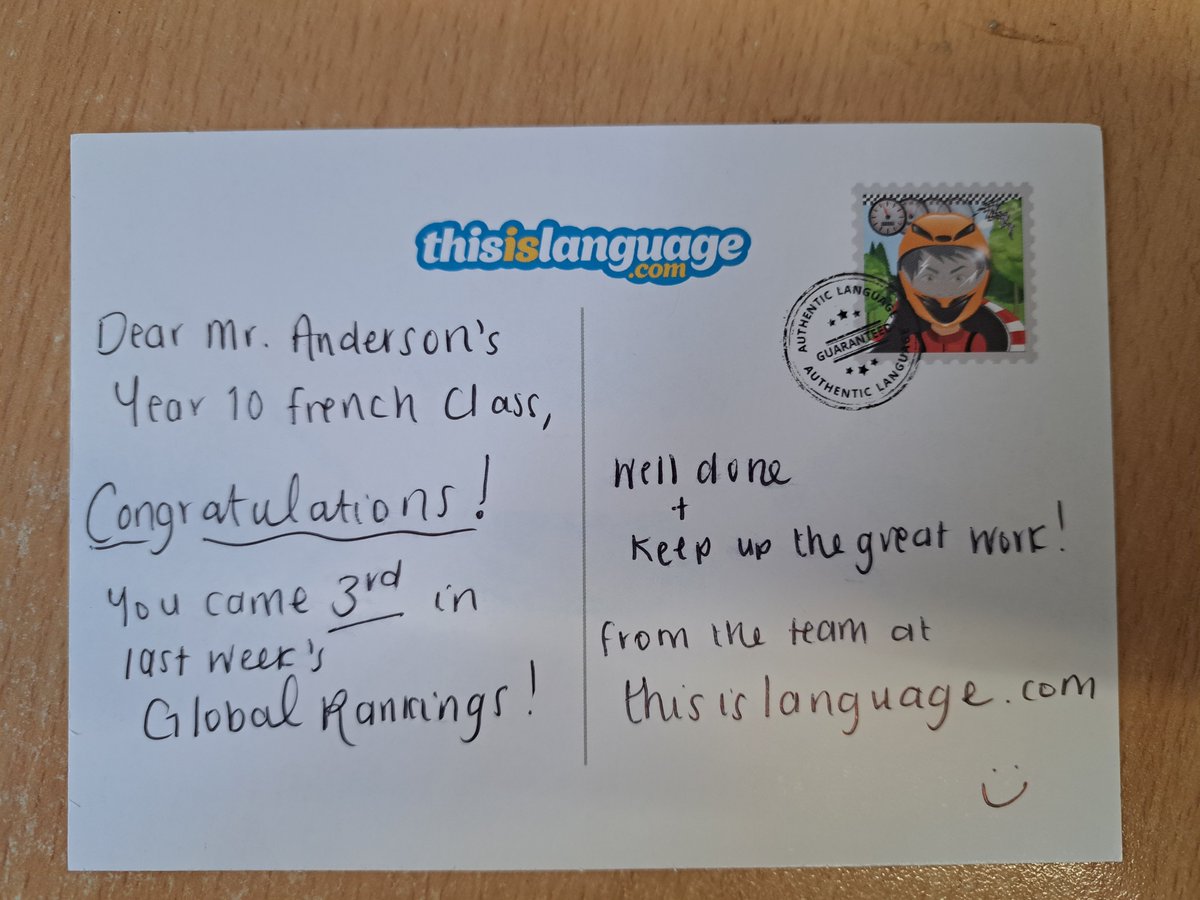 thisislanguage
.com
AUTHENTIC LANGUAGE
GUARANTEED
AUTHENTIC LANGUAGE
Dear Mr. Anderson's
Year 10 French Class,
Congratulations!
You came 3rd in
last week's
Global Rankings!
Well done
+
keep up the great work!
from the team at
thisislanguage.com